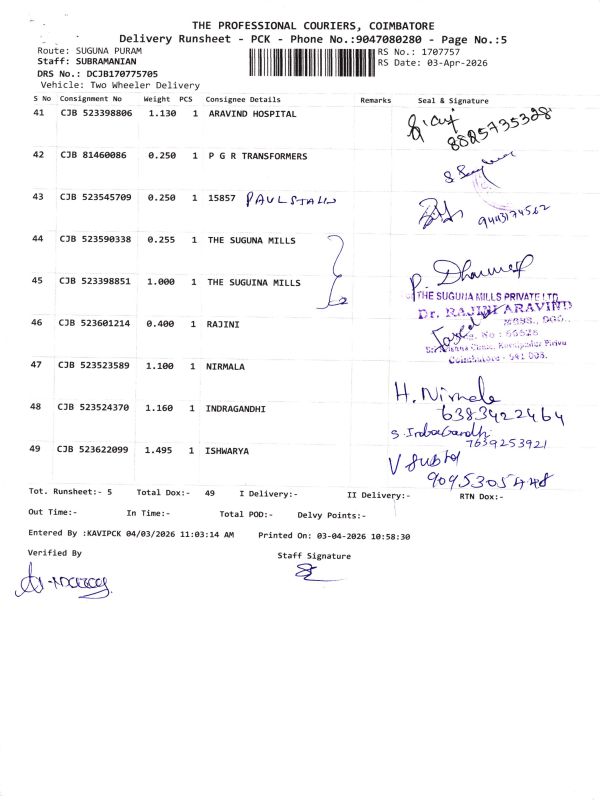 THE PROFESSIONAL COURIERS, COIMBATORE
Delivery Runsheet - PCK - Phone No.:9047080280 - Page No.:5
Route: SUGUNA PURAM
RS No.: 1707757
Staff: SUBRAMANIAN
RS Date: 03-Apr-2026
DRS No.: DCJB170775705
Vehicle: Two Wheeler Delivery
S No Consignment No Weight PCS Consignee Details Remarks Seal & Signature
41 CJB 523398806 1.130 1 ARAVIND HOSPITAL
8825735328
42 CJB 81460086 0.250 1 P G R TRANSFORMERS
43 CJB 523545709 0.250 1 15857 PAULSTALIN
9443174562
44 CJB 523590338 0.255 1 THE SUGUNA MILLS
45 CJB 523398851 1.000 1 THE SUGUINA MILLS
P. Dharmesh
THE SUGUNA MILLS PRIVATE LTD
Dr. RAJINI ARAVIND
46 CJB 523601214 0.400 1 RAJINI
Coimbatore - 641 008.
47 CJB 523523589 1.100 1 NIRMALA
H. Nirmala
6383422464
48 CJB 523524370 1.160 1 INDRAGANDHI
S. IndraGandhi
7639253921
49 CJB 523622099 1.495 1 ISHWARYA
Tot. Runsheet:- 5 Total Dox:- 49 I Delivery:- II Delivery:- RTN Dox:-
Out Time:- In Time:- Total POD:- Delvy Points:-
Entered By :KAVIPCK 04/03/2026 11:03:14 AM Printed On: 03-04-2026 10:58:30
Verified By
Staff Signature